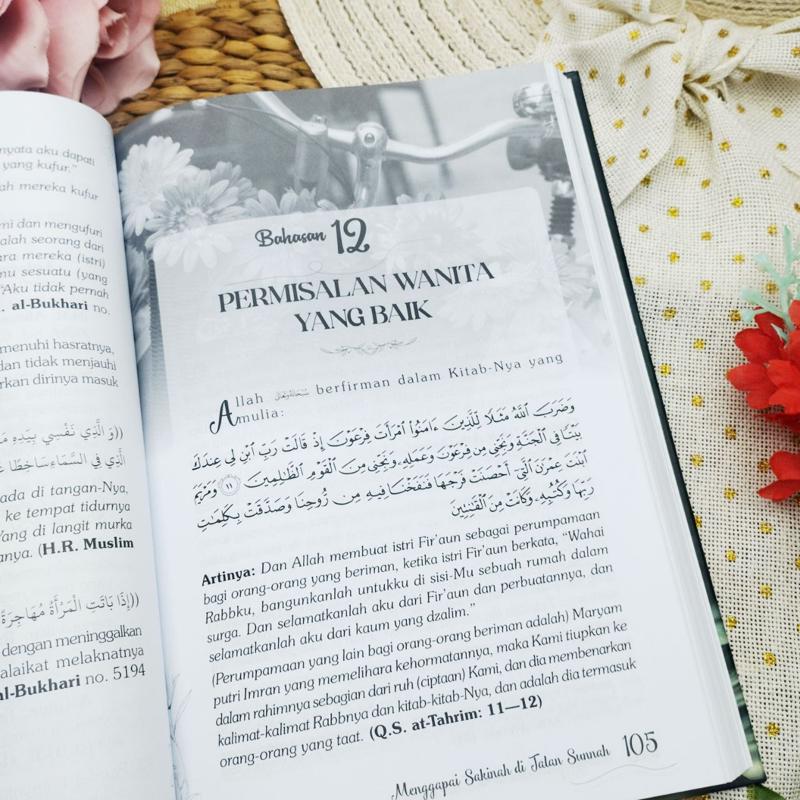 nyata aku dapati
yang kufur."
ah mereka kufur
mi dan mengufuri
alah seorang dari
ara mereka (istri)
mu sesuatu (yang
"Aku tidak pernah
. al-Bukhari no.
menuhi hasratnya,
dan tidak menjauhi
rkan dirinya masuk
((وَ الَّذِي نَفْسِي بِيَدِهِ مَ
الَّذِي فِي السَّمَاءِ سَاخِطًا عَ
ada di tangan-Nya,
ke tempat tidurnya
Yang di langit murka
anya. (H.R. Muslim
((إِذَا بَاتَتِ الْمَرْأَةُ مُهَاجِرَةً
dengan meninggalkan
alaikat melaknatnya
al-Bukhari no. 5194
Bahasan 12
PERMISALAN WANITA
YANG BAIK
Allah berfirman dalam Kitab-Nya yang
mulia:
وَضَرَبَ ٱللَّهُ مَثَلًا لِّلَّذِينَ ءَامَنُوا۟ ٱمْرَأَتَ فِرْعَوْنَ إِذْ قَالَتْ رَبِّ ٱبْنِ لِى عِندَكَ
بَيْتًا فِى ٱلْجَنَّةِ وَنَجِّنِى مِن فِرْعَوْنَ وَعَمَلِهِۦ وَنَجِّنِى مِنَ ٱلْقَوْمِ ٱلظَّٰلِمِينَ ١١ وَمَرْيَمَ
ٱبْنَتَ عِمْرَٰنَ ٱلَّتِىٓ أَحْصَنَتْ فَرْجَهَا فَنَفَخْنَا فِيهِ مِن رُّوحِنَا وَصَدَّقَتْ بِكَلِمَٰتِ
رَبِّهَا وَكُتُبِهِۦ وَكَانَتْ مِنَ ٱلْقَٰنِتِينَ
Artinya: Dan Allah membuat istri Fir'aun sebagai perumpamaan
bagi orang-orang yang beriman, ketika istri Fir'aun berkata, "Wahai
Rabbku, bangunkanlah untukku di sisi-Mu sebuah rumah dalam
surga. Dan selamatkanlah aku dari Fir'aun dan perbuatannya, dan
selamatkanlah aku dari kaum yang dzalim."
(Perumpamaan yang lain bagi orang-orang beriman adalah) Maryam
putri Imran yang memelihara kehormatannya, maka Kami tiupkan ke
dalam rahimnya sebagian dari ruh (ciptaan) Kami, dan dia membenarkan
kalimat-kalimat Rabbnya dan kitab-kitab-Nya, dan adalah dia termasuk
orang-orang yang taat. (Q.S. at-Tahrim: 11—12)
Menggapai Sakinah di Jalan Sunnah 105